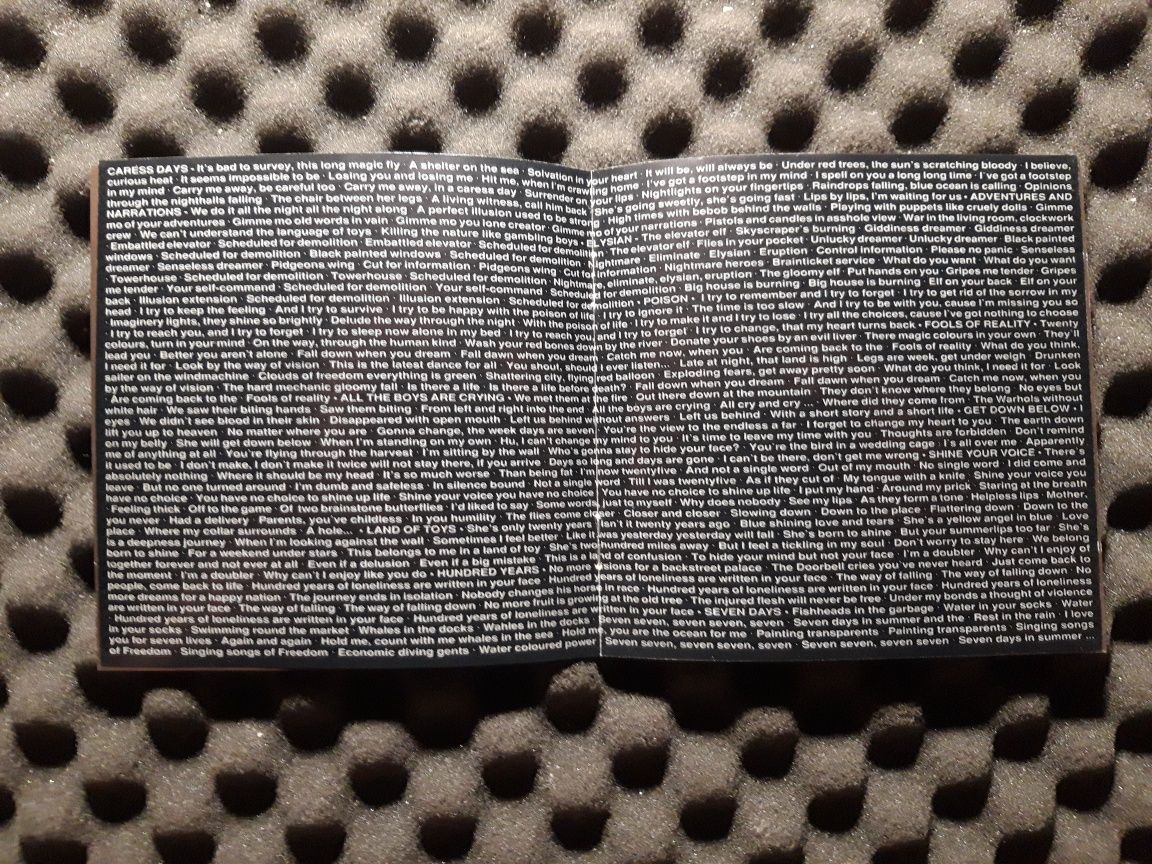 CARESS DAYS - It's bad to survey, this long magic fly · A shelter on the sea · Solvation in your heart · It will be, will always be · Under red trees, the sun's scratching bloody · I believe,
curious heat · It seems impossible to be · Losing you and losing me · Hit me, when I'm crawling home · I've got a footstep in my mind · I spell on you a long long time · I've got a footstep
in my mind · Carry me away, be careful too · Carry me away, in a caress day · Surrender on your lips · Nightlights on your fingertips · Raindrops falling, blue ocean is calling · Opinions
through the nighthalls falling · The chair between her legs · A living witness, call him back · She's going sweetly, she's going fast · Lips by lips, I'm waiting for us • ADVENTURES AND
NARRATIONS - We do it all the night all the night along · A perfect illusion used to be a · High times with bebob behind the walls · Playing with puppets like cruely dolls · Gimme
no of your adventures · Gimme mo old words in vain · Gimme you lone creator · Gimme no of your narrations · Pistols and candles in asshole view · War in the living room, clockwork
crew · We can't understand the language of toys · Killing the nature like gambling boys • ELYSIAN - The elevator elf · Skyscraper's burning · Giddiness dreamer · Giddiness dreamer
Embattled elevator · Scheduled for demolition · Embattled elevator · Scheduled for demolition · The elevator elf · Flies in your pocket · Unlucky dreamer · Unlucky dreamer · Black painted
windows · Scheduled for demolition · Black painted windows · Scheduled for demolition · Nightmare · Eliminate · Elysian · Eruption · Control information · Please no panic · Senseless
dreamer · Senseless dreamer · Pidgeons wing · Cut for reformation · Pidgeons wing · Cut for information · Nightmare heroes · Brainticket service · What do you want · What do you want
Towerhouse · Scheduled for demolition · Towerhouse · Scheduled for demolition · Nightmare, eliminate, elysian, eruption · The gloomy elf · Put hands on you · Gripes me tender · Gripes
me tender · Your self-command · Scheduled for demolition · Your self-command · Scheduled for demolition · Big house is burning · Big house is burning · Elf on your back · Elf on your
back · Illusion extension · Scheduled for demolition · Illusion extension · Scheduled for demolition • POISON • I try to remember and I try to forget · I try to get rid of the sorrow in my
head · I try to keep the feeling · And I try to survive · I try to be happy with the poison of life · I try to ignore it · The time is too slow · And I try to be with you, cause I'm missing you so
Imaginery lights, they shine so brightly · Delude the way through the night · With the poison of life · I try to make it and I try to lose · I try all the choices, cause I've got nothing to choose
I try to reach you, and I try to forget · I try to sleep now alone in my bed · I try to reach you, and I try to forget · I try to change, that my heart turns back • FOOLS OF REALITY • Twenty
colours, turn in your mind · On the way, through the human kind · Wash your red bones down by the river · Donate your shoes by an evil liver · There magic colours in your mind · They'll
lead you · Better you aren't alone · Fall down when you dream · Fall down when you dream · Catch me now, when you · Are coming back to the · Fools of reality · What do you think,
I need it for · Look by the way of vision · This is the latest dance for all · You shout, should I ever listen? ... · Late at night, that land is high · Legs are week, get under weigh · Drunken
sailer on the windmachine · Clouds of freedom everything is green · Shattering city, flying red balloon · Exploding fears, get away pretty soon · What do you think, I need it for · Look
by the way of vision · The hard mechanic gloomy fall · Is there a life · Is there a life before death? · Fall down when you dream · Fall down when you dream · Catch me now, when you
Are coming back to the · Fools of reality • ALL THE BOYS ARE CRYING - We met them at the fire · Out there down at the mountain · They don't know where they belong · No eyes but
white hair · We saw their biting hands · Saw them biting · From left and right into the end · All the boys are crying · All cry and cry ... · Where did they come from · The Warhols without
eyes · We didn't see blood in their skin · Disappeared with open mouth · Left us behind without answers · Left us behind · With a short story and a short life • GET DOWN BELOW • I
lift you up to heaven · No matter where you are · Gonna change, the week days are seven · You're the view to the endless a far · I forget to change my heart to you · The earth down
on my belly · She will get down below · When I'm standing on my own · Hu, I can't change my mind to you · It's time to leave my time with you · Thoughts are forbidden · Don't remind
me of anything at all · You're flying through the harvest · I'm sitting by the wall · Who's gonna stay to hide your face? · You're the bird in a wedding cage · I's all over me · Apparently
it used to be · I don't make, I don't make it twice will not stay there, if you arrive · Days so long and days are gone · I can't be there, don't get me wrong • SHINE YOUR VOICE • There's
absolutely nothing · Where it should be my head · It's so much worse · Than being fat · I'm now twentyfive · And not a single word · Out of my mouth · No single word · I did come and
leave · But no one turned around · I'm dumb and safeless · In silence bound · Not a single word · Till I was twentyfive · As if they cut of · My tongue with a knife · Shine your voice you
have no choice · You have no choice to shine up life · Shine your voice you have no choice · You have no choice to shine up life · I put my hand · Around my prick · Staring at the breath
Feeling thick · Off to the game · Of two brainstone butterflies · I'd liked to say · Some words just to myself · Why does nobody · See my lips · As they form a tone · Helpless lips · Mother,
you never · Had a delivery · Parents, you've childless · In you humility · The flies come close · Closer and closer · Slowing down · Down to the place · Flattering down · Down to the
place · Where my collar surrounds · A hole... • LAND OF TOYS • She's only twenty years · Isn't it twenty years ago · Blue shining love and tears · She's a yellow angel in blue · Love
is a deepness journey · When I'm looking against the wall · Sometimes I feel better · Like it was yesterday yesterday will fall · She's born to shine · But your summerlips too far · She's
born to shine · For a weekend under stars · This belongs to me in a land of toy · She's two hundred miles away · But I feel a tickling in my soul · Don't worry to stay here · We belong
together forever and not ever at all · Even if a delusion · Even if a big mistake · This is a land of contusion · To hide your mind but not your face · I'm a doubler · Why can't I enjoy of
the moment · I'm a doubler · Why can't I enjoy like you do • HUNDRED YEARS • No more visions for a backstreet palace · The Doorbell cries you've never heard · Just come back to
people, come back to life · Hundred years of loneliness are written in your face · Hundred years of loneliness are written in your face · The way of falling · The way of falling down · No
more dreams for a happy nation · The journey ends in isolation · Nobody changes his horse in race · Hundred years of loneliness are written in your face · Hundred years of loneliness
are written in your face · The way of falling · The way of falling down · No more fruit is growing at the old tree · The injured flesh will never be free · Under my bonds a thought of violence
Hundred years of loneliness are written in your face · Hundred years of loneliness are written in your face • SEVEN DAYS • Fishheads in the garbage · Water in your socks · Water
in your socks · Swimming round the market · Whales in the docks · Wahles in the docks · Seven seven, seven seven, seven · Seven days in summer and the · Rest in the rain · I love
you for seven lives · Again and again · Hold me, count with me whales in the sea · Hold me, you are the ocean for me · Painting transparents · Painting transparents · Singing songs
of Freedom · Singing songs of Freedom · Economic diving gents · Water coloured power · Seven seven, seven seven, seven · Seven seven, seven seven, seven · Seven days in summer ...